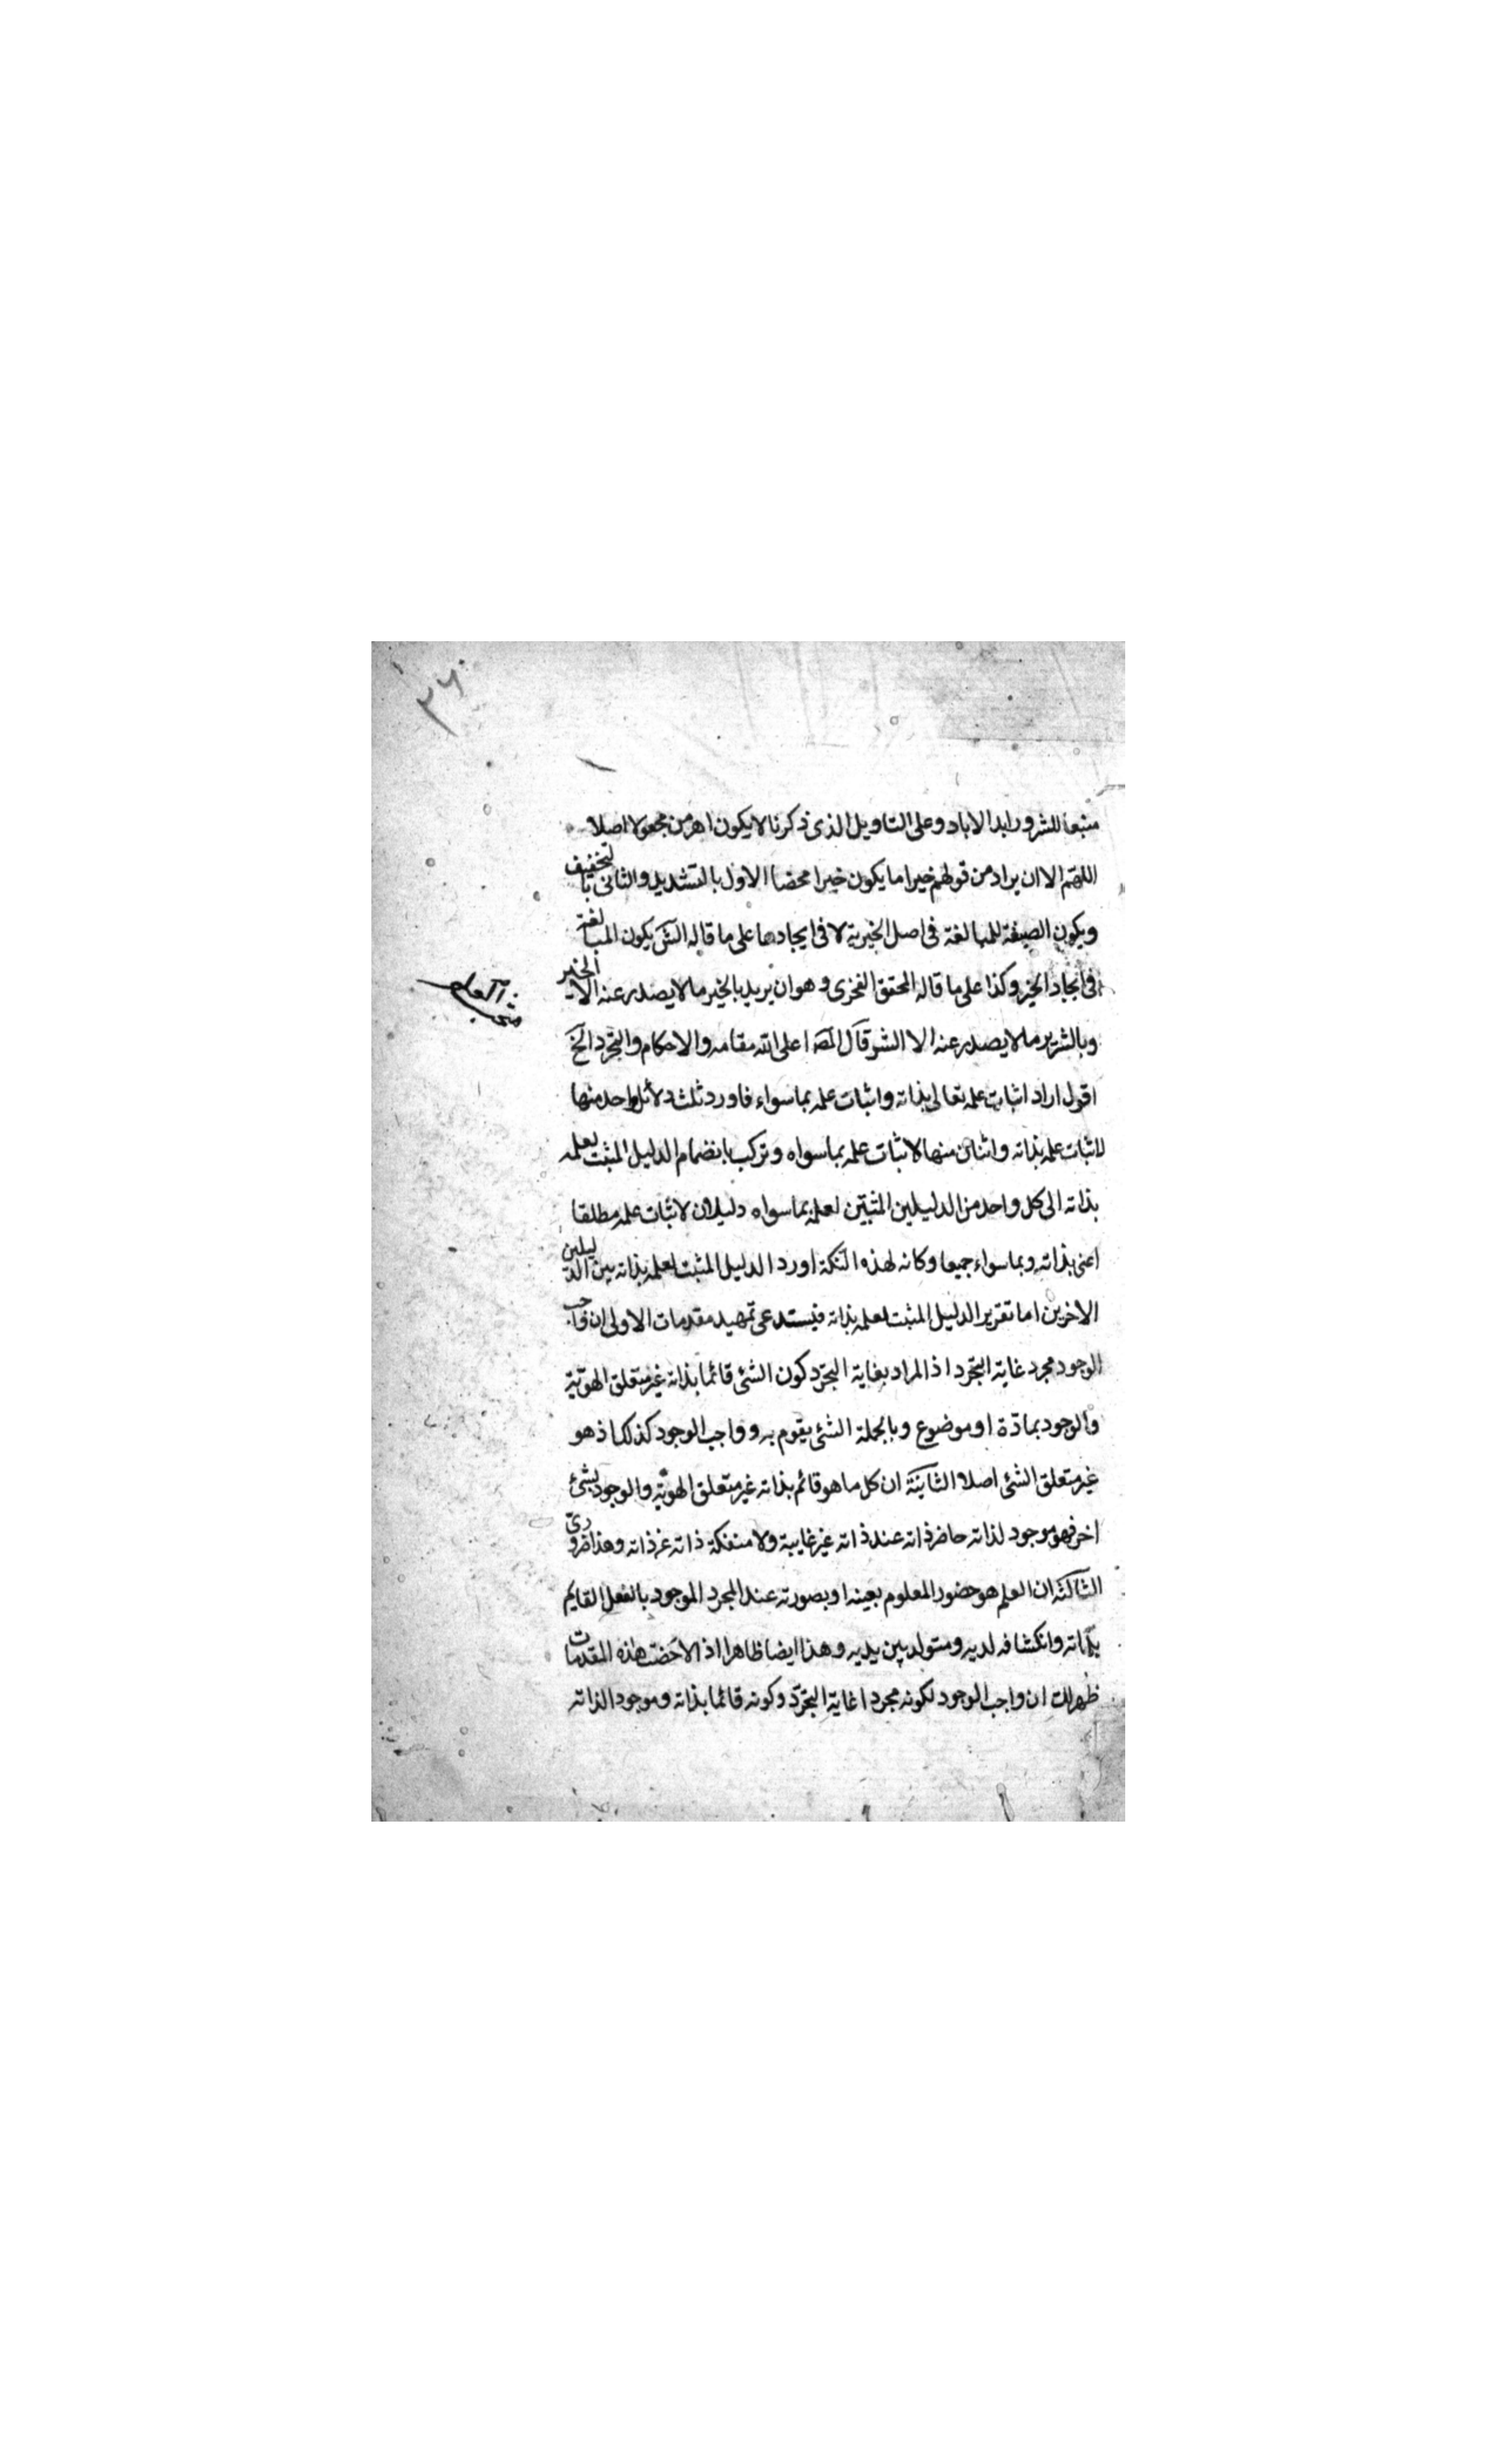 ٣٦
منبعا للشرور ابد الاباد وعلى التاويل الذى ذكرنا لا يكون اهرمن مجعولا اصلا
اللهم الا ان يراد من قولهم خيرا ما يكون خيرا محضا الاول بالتشديد والثانى بالتخفيف
ويكون الصيغة للمبالغة فى اصل الخيرية لا فى ايجادها على ما قاله الش يكون المبالغة
فى ايجاد الخير وكذا على ما قاله المحقق الفخرى وهو ان يريد بالخير ما لا يصدر عنه الا الخير
وبالشرير ما لا يصدر عنه الا الشر قال المصه اعلى الله مقامه والاحكام والتجرد الخ
اقول اراد اثبات علمه تعالى بذاته واثبات علمه بما سواه فاورد ثلث دلائل واحد منها
لاثبات علمه بذاته واثنان منها لاثبات علمه بما سواه وتركب بانضمام الدليل المثبت لعلمه
بذاته الى كل واحد من الدليلين المثبتين لعلمه بما سواه دليلان لاثبات علمه مطلقا
اعنى بذاته وبما سواه جميعا وكانه لهذه النكتة اورد الدليل المثبت لعلمه بذاته بين الدليلين
الاخرين اما تقرير الدليل المثبت لعلمه بذاته فيستدعى تمهيد مقدمات الاولى ان واجب
الوجود مجرد غاية التجرد اذ المراد بغاية التجرد كون الشئ قائما بذاته غير متعلق الهوية
والوجود بمادة او موضوع وبالجملة الشئ يقوم به وواجب الوجود كذلك اذ هو
غير متعلق الشئ اصلا الثانية ان كل ما هو قائم بذاته غير متعلق الهوية والوجود بشئ
اخر فهو موجود لذاته حاضر ذاته عند ذاته غير غايبة ولا منفكة ذاته عن ذاته وهذا ضرورى
الثالثة ان العلم هو حضور المعلوم بعينه او بصورته عند المجرد الموجود بالفعل القايم
بذاته وانكشافه لديه ومتولد بين يديه وهذا ايضا ظاهر اذ الاحضت هذه المقدمات
ظهر لك ان واجب الوجود لكونه مجردا غاية التجرد وكونه قائما بذاته وموجودا لذاته